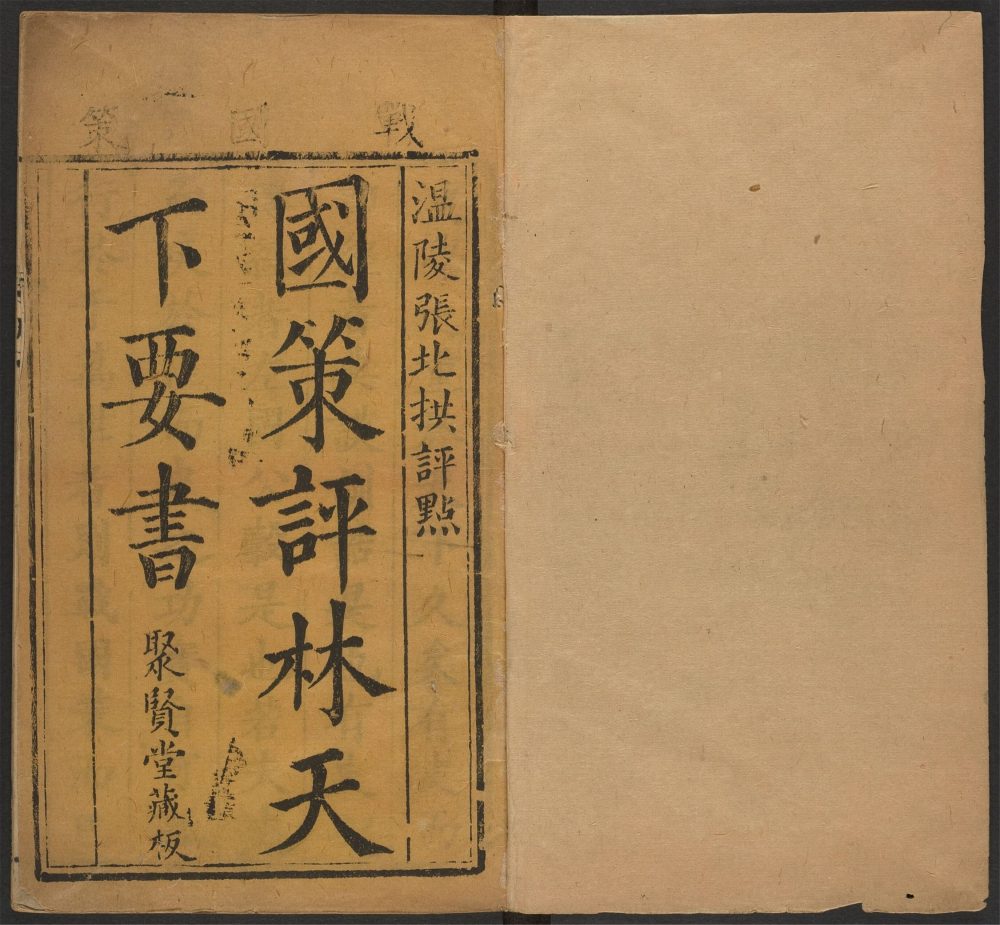 戰國策
溫陵張北拱評點
國策評林天
下要書
聚賢堂藏板